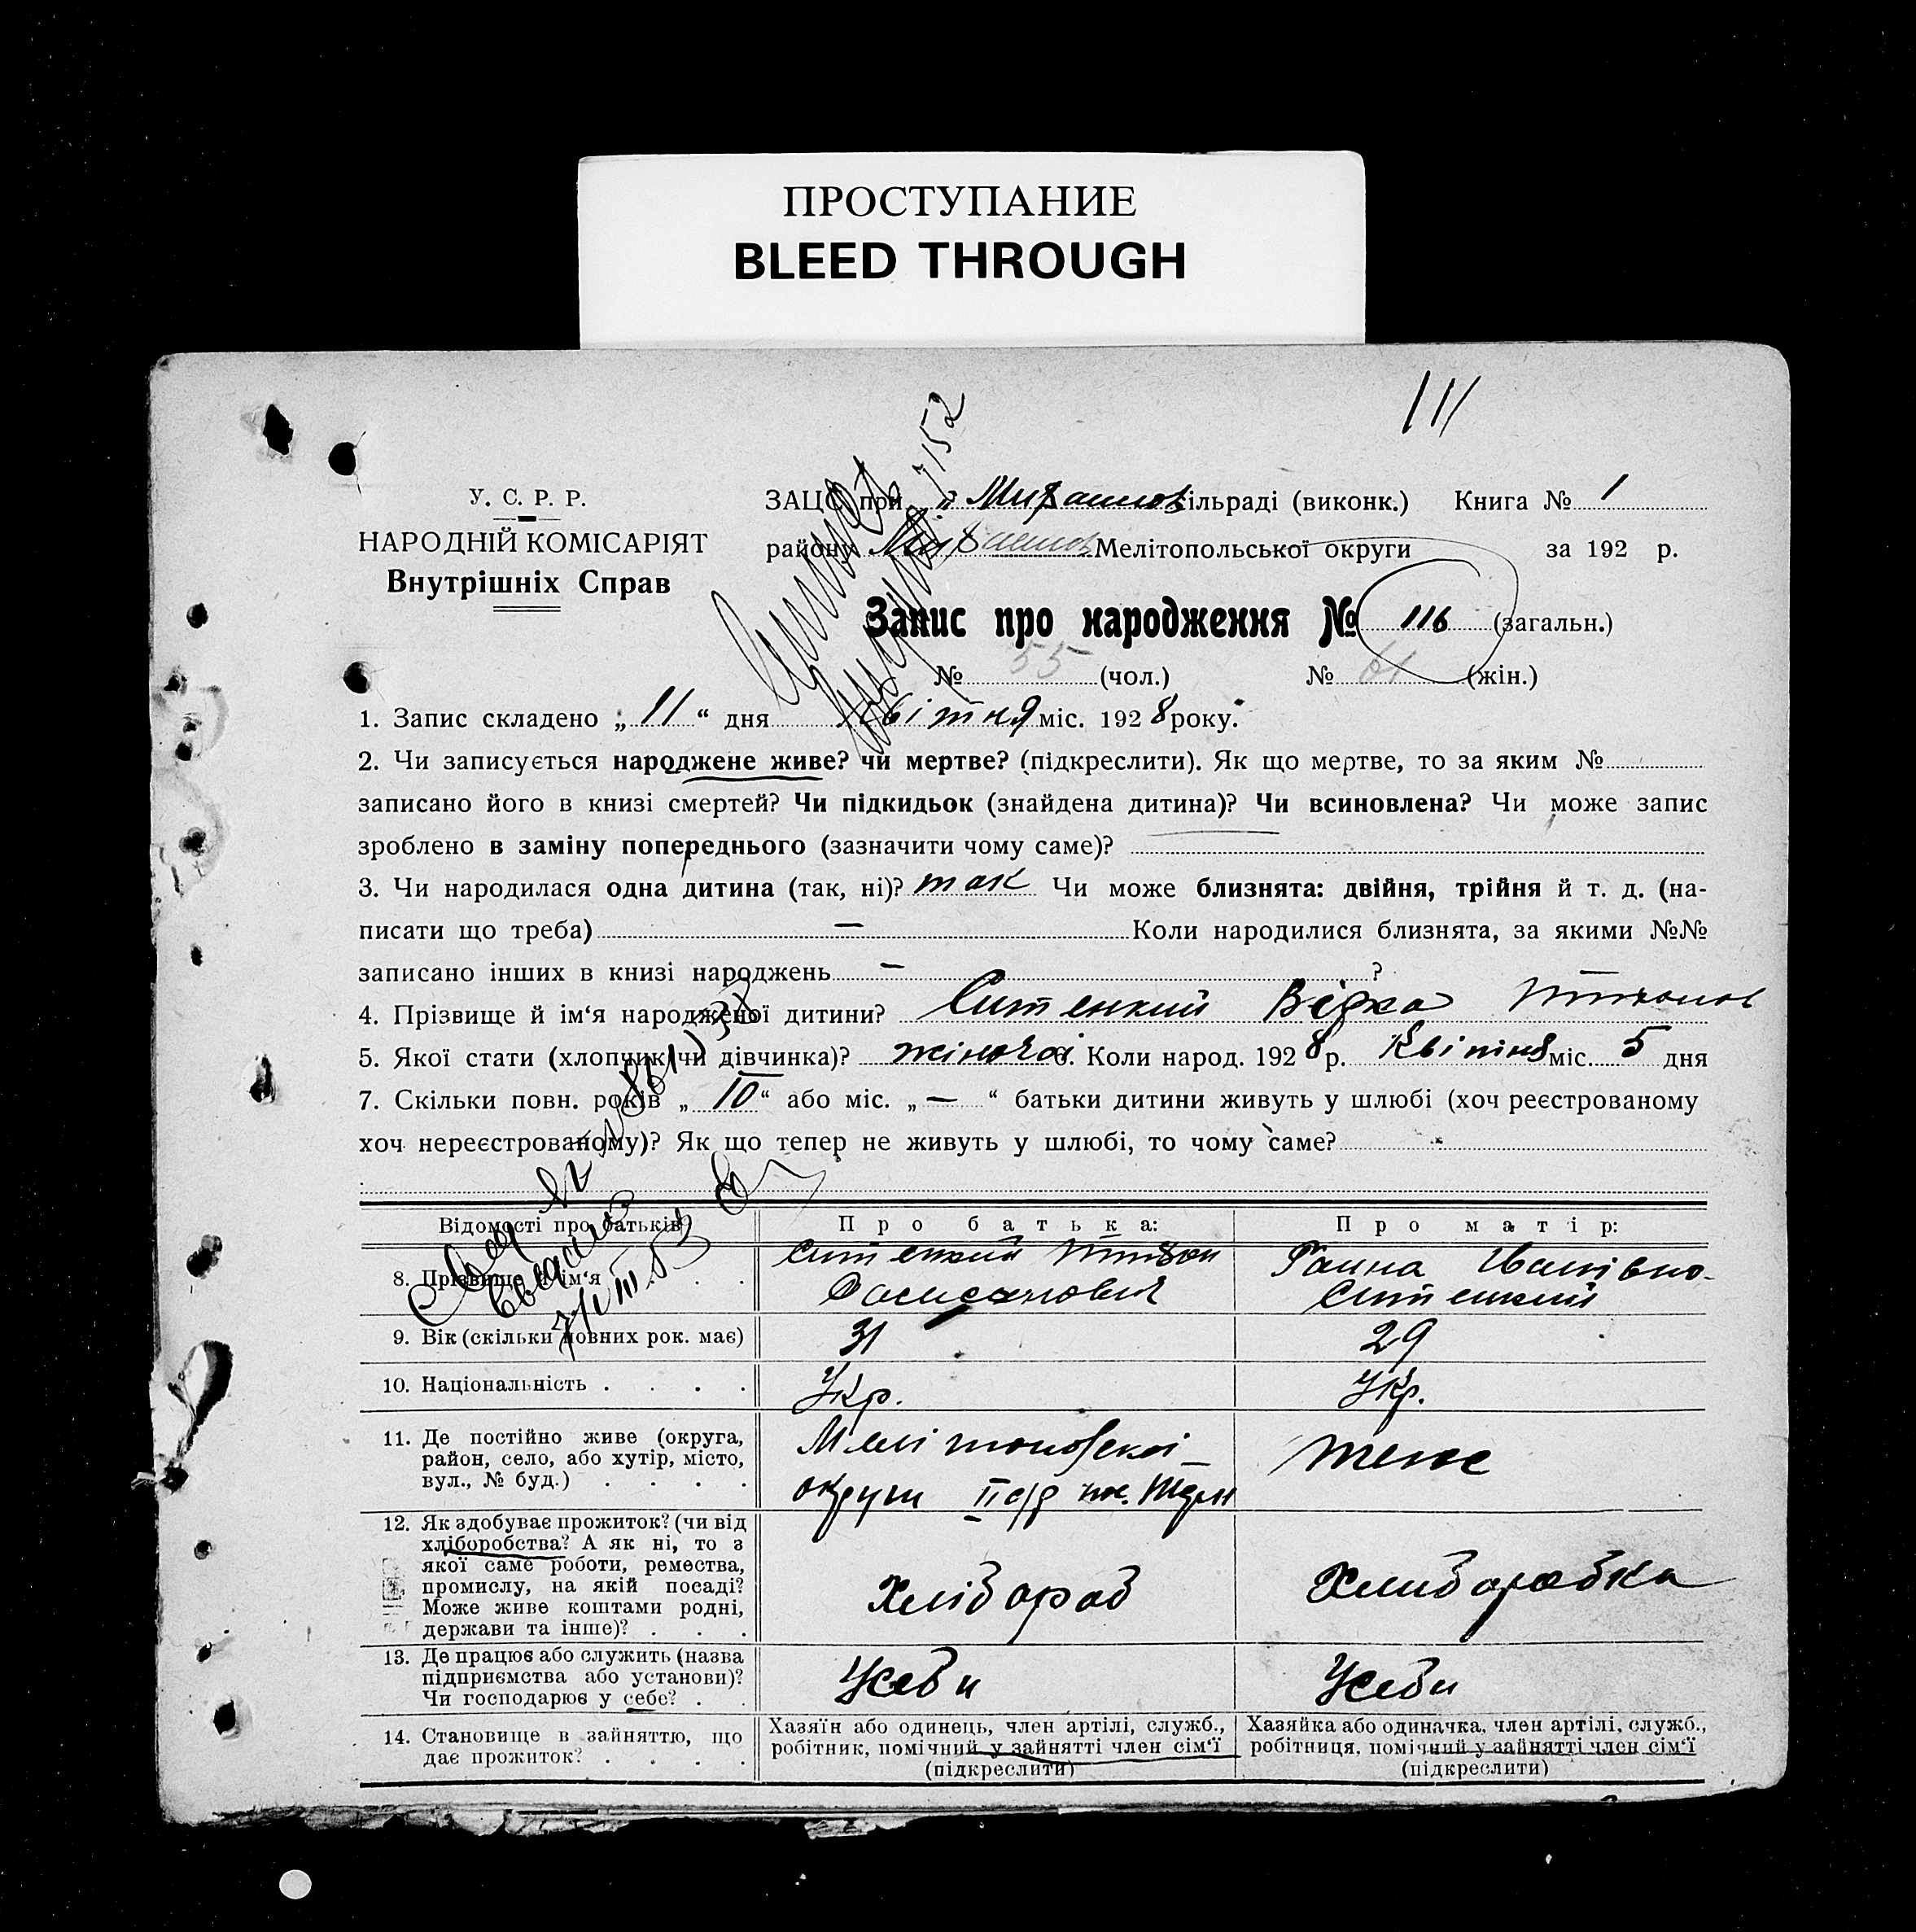 ПРОСТУПАНИЕ
BLEED THROUGH
111
У. С. Р. Р.
НАРОДНІЙ КОМІСАРІЯТ
Внутрішніх Справ
ЗАЦС при сільраді (виконк.) Книга № 1
району Мелітопольської округи за 192 р.
Запис про народження № 116 (загальн.)
№ 55 (чол.) № 61 (жін.)
1. Запис складено „ 11 “ дня квітня міс. 1928 року.
2. Чи записується народжене живе? чи мертве? (підкреслити). Як що мертве, то за яким №
записано його в книзі смертей? Чи підкидьок (знайдена дитина)? Чи всиновлена? Чи може запис
зроблено в заміну попереднього (зазначити чому саме)?
3. Чи народилася одна дитина (так, ні)? так Чи може близнята: двійня, трійня й т. д. (на-
писати що треба) — Коли народилися близнята, за якими №№
записано інших в книзі народжень — ?
4. Прізвище й ім‘я народженої дитини? Ситенкий Вірка
5. Якої стати (хлопчик чи дівчинка)? жіночої 6. Коли народ. 1928 р. Квітня міс. 5 дня
7. Скільки повн. років „ 10 “ або міс. „ — “ батьки дитини живуть у шлюбі (хоч реєстрованому
хоч нереєстрованому)? Як що тепер не живуть у шлюбі, то чому саме?
Відомості про батьків Про батька: Про матір:
8. Прізвище й ім‘я . . . Ситенкий Ганна Іванівно-
Ситенкий
9. Вік (скільки повних рок. має) 31 29
10. Національність . . . . Укр. Укр.
11. Де постійно живе (округа,
район, село, або хутір, місто,
вул., № буд.) . . . .
округи теж
12. Як здобуває прожиток? (чи від
хліборобства? А як ні, то з
якої саме роботи, ремества,
промислу, на якій посаді?
Може живе коштами родні,
держави та інше)? . . .
Хлібороб Хлиборобка
13. Де працює або служить (назва
підприємства або установи)?
Чи господарює у себе? . .
Усеби Усеби
14. Становище в зайняттю, що
дає прожиток? . . . .
Хазяїн або одинець, член артілі, служб.,
робітник, помічний у зайнятті член сім‘ї
(підкреслити)
Хазяйка або одиначка, член артілі, служб.,
робітниця, помічний у зайнятті член сім‘ї
(підкреслити)